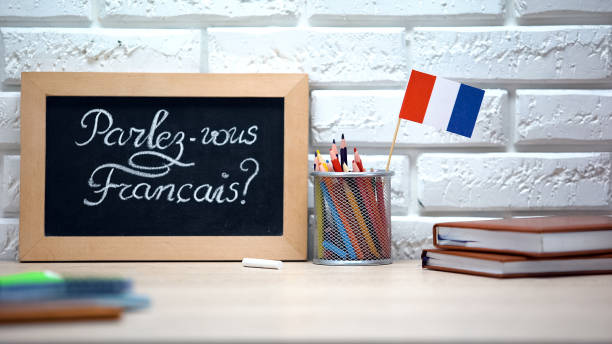 Parlez-vous
Français?